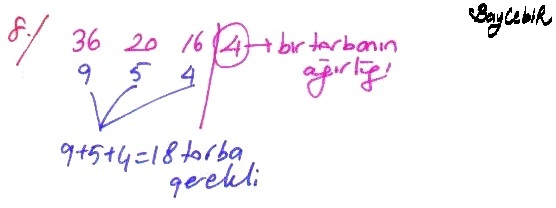 BayCebir
8./ 36 20 16 | 4 → bir torbanın
9 5 4 ağırlığı
9+5+4=18 torba
gerekli